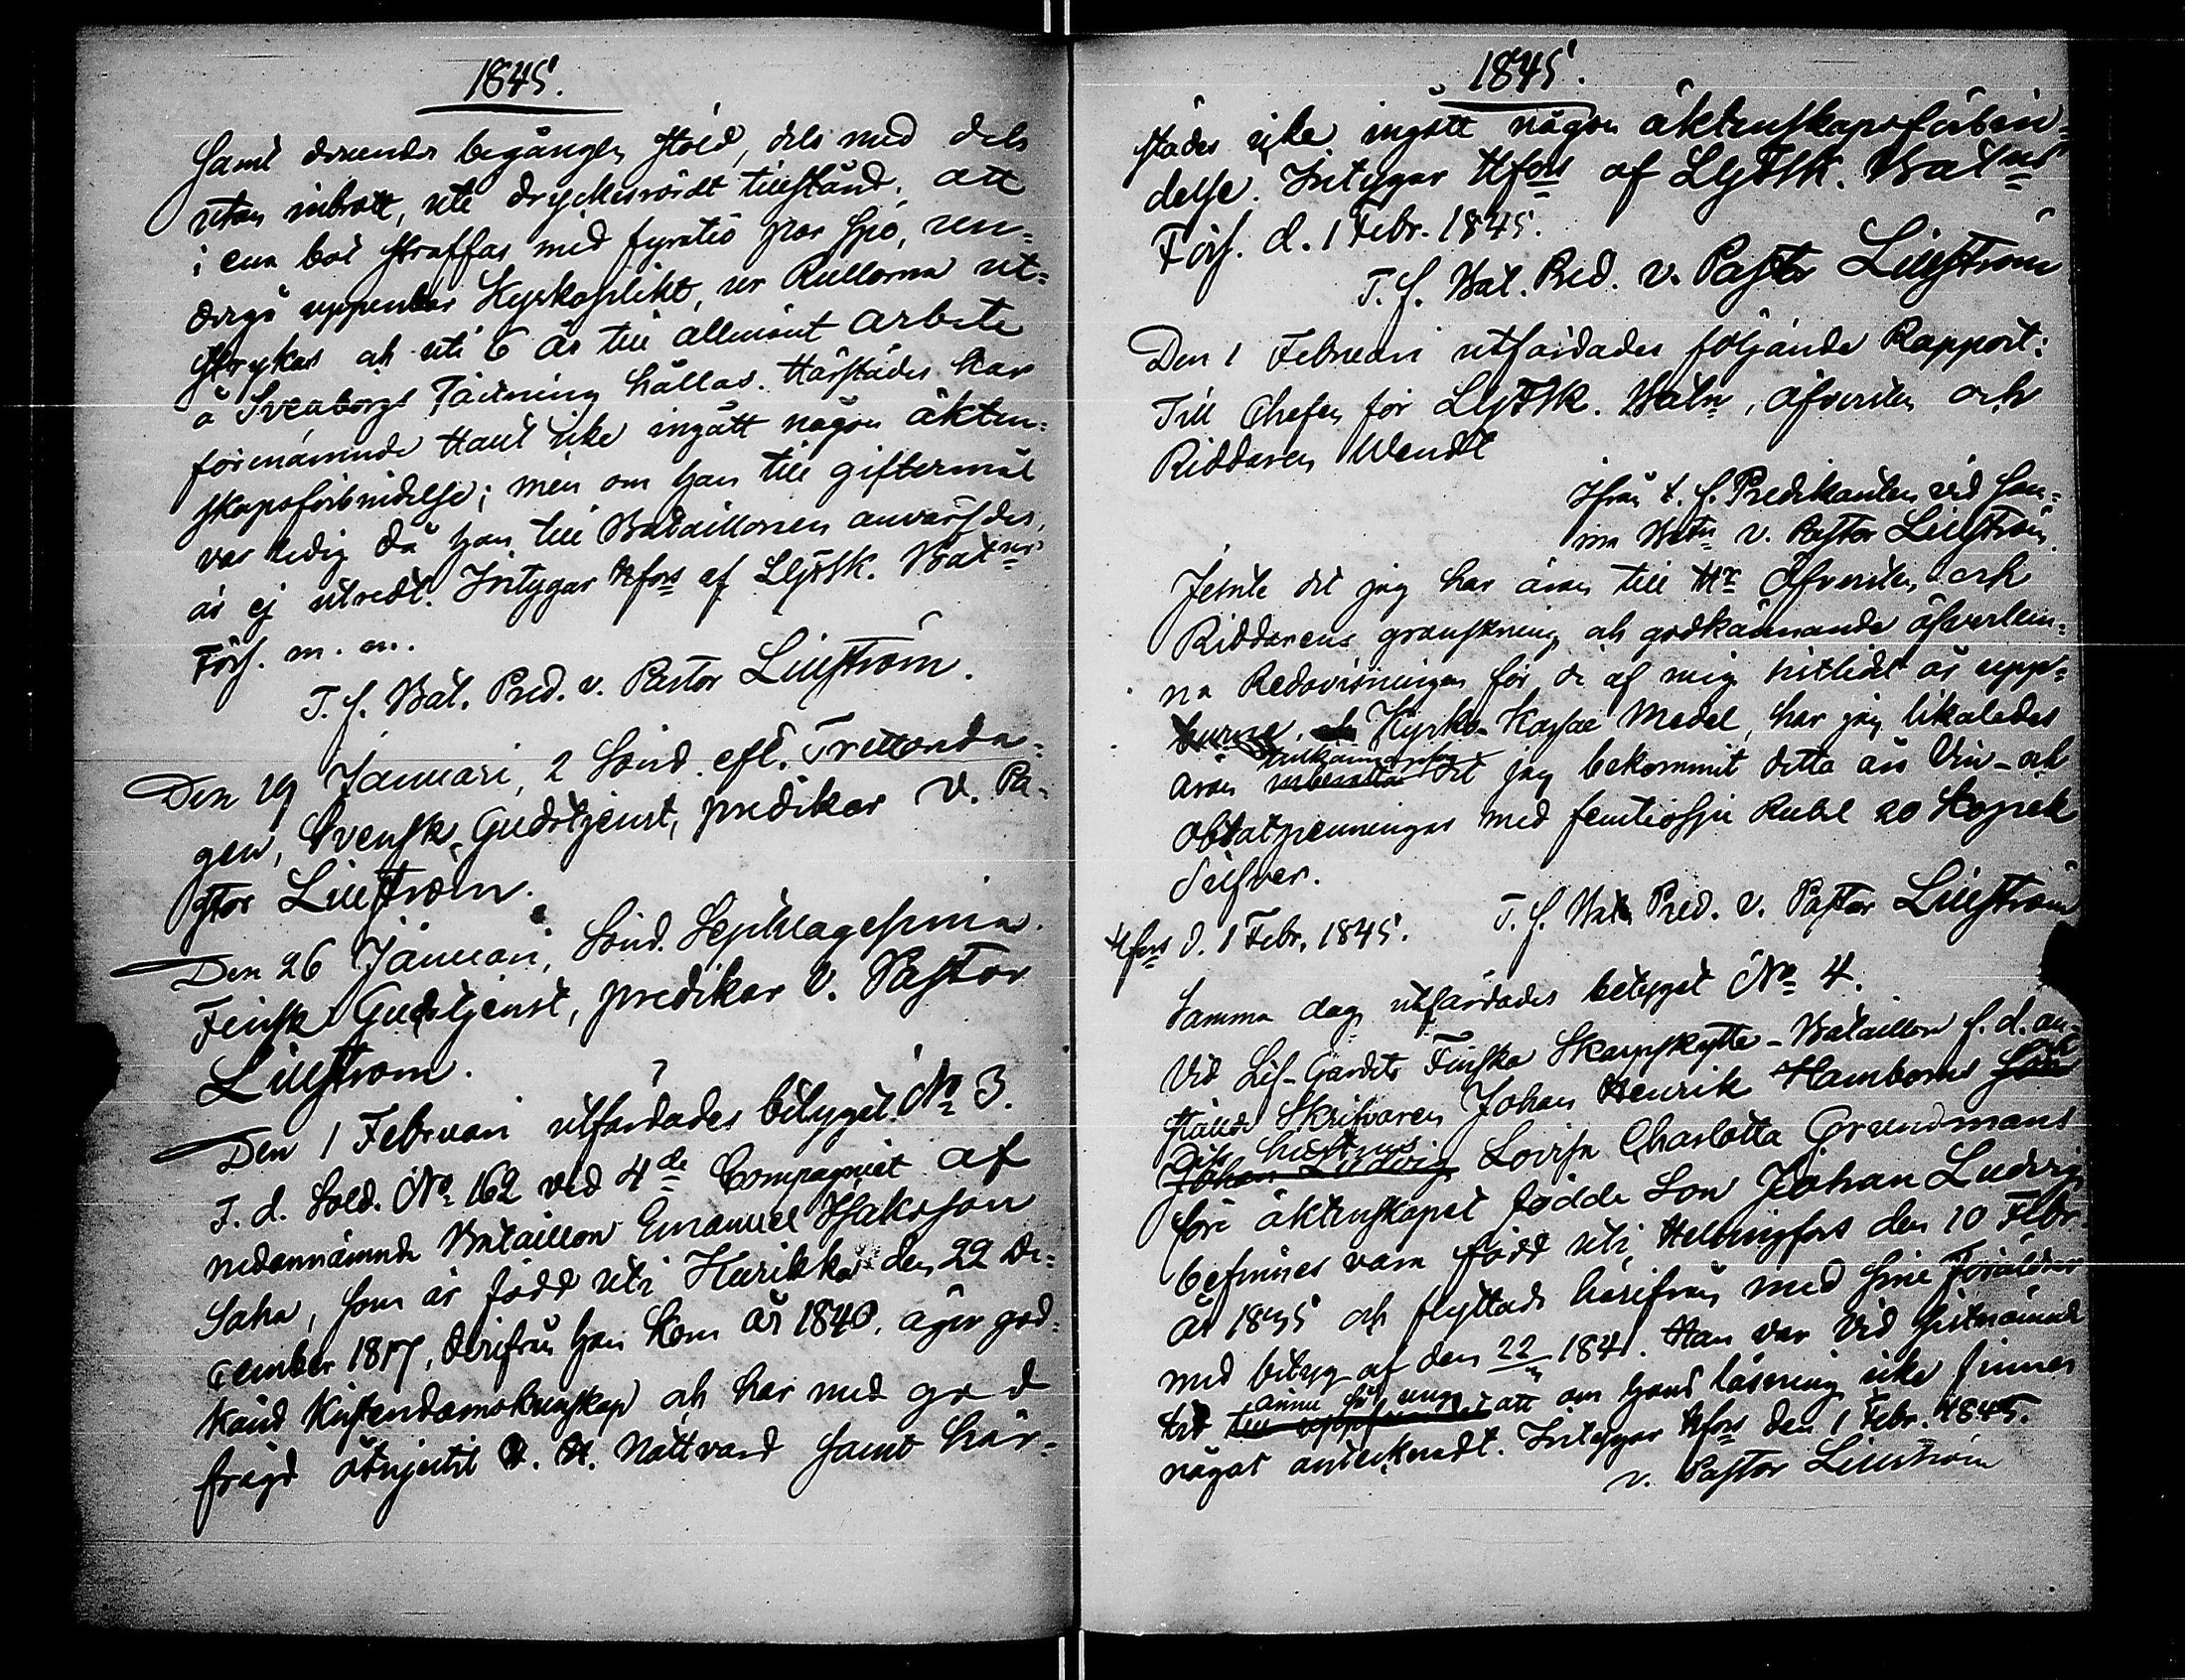 1845.
samt derunder begången stöld, dels med dels
utan inbrott, uti dryckesrördt tillstånd, att
i ena bot straffas med fyratio par spö, un-
dergå uppenbar Kyrkoplikt, ur Rullorna ut-
strykas och uti 6 år till allmänt arbete
å Sveaborgs Fästning hållas. Härstädes har
förenämnde Hault icke ingått någon äkten-
skapsförbindelse; men om han till giftermål
var ledig då han till Bataillonen anvärfdes,
är ej utredt. Intygar Hfors af LGFSk. Batns
Förs. m. m.
T. f. Bat. Pred. v. Pastor Lillström.
Den 19 Januari, 2 Sönd. eft. Trettonda-
gen, Svensk Gudstjenst, predikar v. Pa-
stor Lillström.
Den 26 Januari, Sönd. Septuagesima.
Finsk Gudstjenst, predikar v. Pastor
Lillström.
Den 1 Februari utfärdades betyget No 3.
F. d. Sold. No 162 vid 4de Compagniet af
nedannämnde Bataillon Emanuel Isaksson
Saha, som är född uti Kurikka den 22 De-
cember 1817, derifrån han kom år 1840, äger god-
känd Kristendomskunskap och har med god
frägd åtnjutit H. H. Nattvard samt här-
1845.
städes icke ingått någon äktenskapsförbin-
delse. Intygar Hfors af LGFSk. Batns
Förs. d. 1 Febr. 1845.
T. f. Bat. Pred. v. Pastor Lillström
Den 1 Februari utfärdades följande Rapport:
Till Chefen för LGFSk. Batn, Öfversten och
Riddaren Wendt
Ifrån t. f. Predikanten vid sam-
ma Batn v. Pastor Lillström.
Jemte det jag har äran till Hr Öfversten och
Riddarens granskning och godkännande öfverlem-
na Redovisningen för de af mig sistlidet år upp-
burna Kyrko-Kassae Medel, har jag likaledes
äran tillkännagifva det jag bekommit detta års Vin- och
Oblatpenningar med femtiosju Rubel 20 Kopek
Silfver.
T. f. Bat. Pred. v. Pastor Lillström
Hfors d. 1 Febr. 1845.
Samma dag utfärdades betyget No 4.
Vid Lif-Gardets Finska Skarpskytte-Bataillon f. d. an-
stälde Skrifvaren Johan Henrik Hamboms och
dess hustrus
Johan Ludvig Lovisa Charlotta Grundmans
före äktenskapet födde Son Johan Ludvig
befinnes vara född uti Helsingfors den 10 Febr.
år 1835 och flyttade härifrån med sine Föräldrar
med betyg af den 22 1841. Han var vid sistnämnde
tid ännu så ung att om hans läsning icke finnes
något antecknadt. Intygar Hfors den 1 Febr. 1845.
v. Pastor Lillström